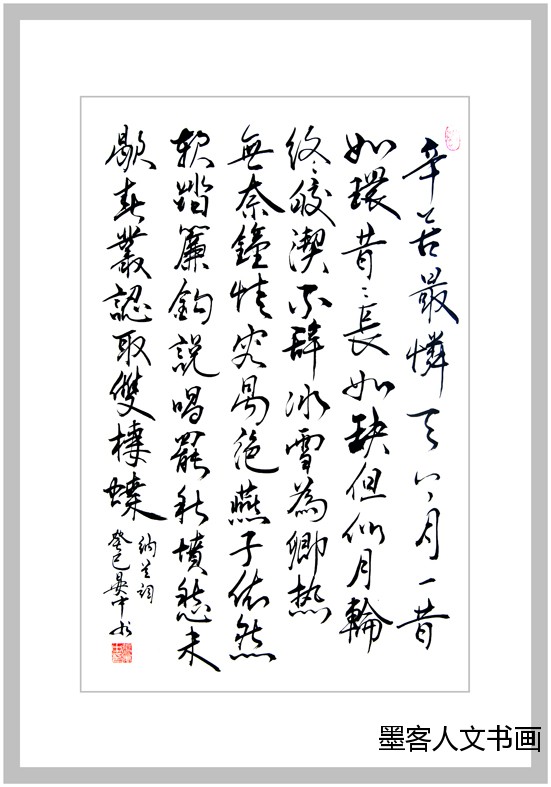 辛苦最憐天上月一昔
如環昔〻長如缺但似月輪
終皎潔不辭冰雪為卿热
無奈鐘情容易絕燕子依然
軟踏簾鈎說唱罷秋墳愁未
歇春叢認取雙棲蝶
納兰詞
癸巳中书
墨客人文书画